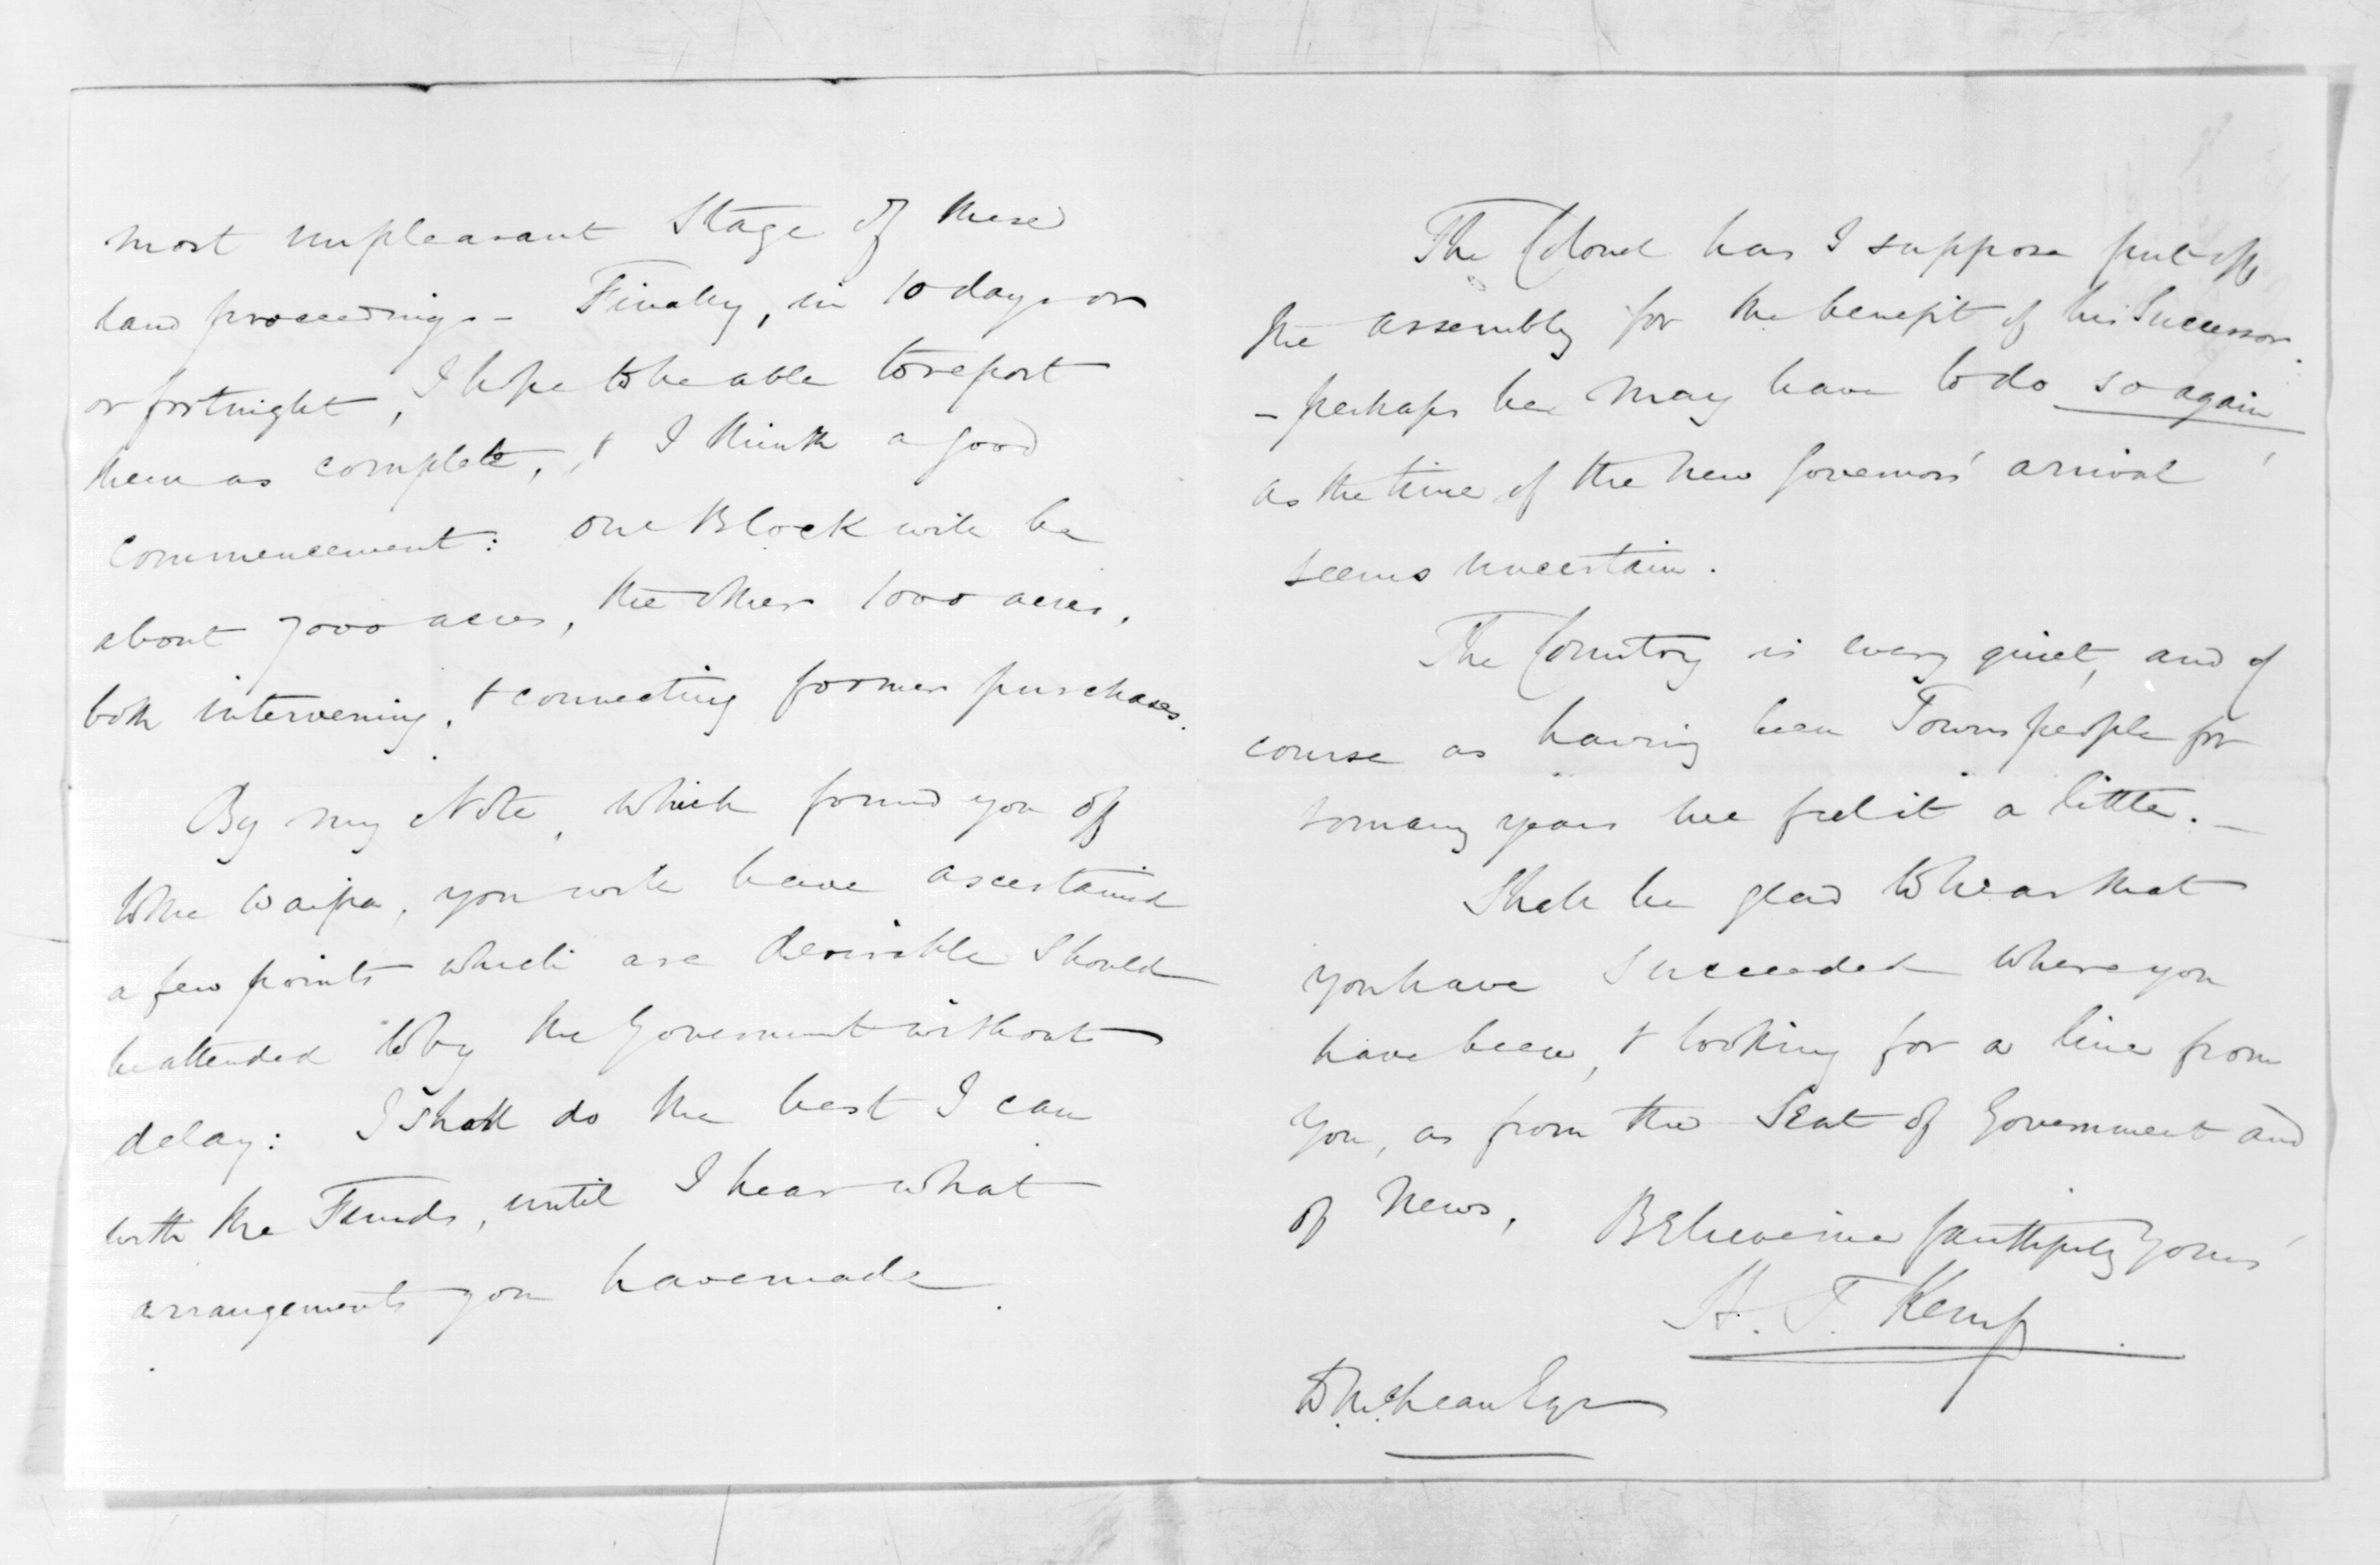 most unpleasant Stage of these
land proceedings - Finally, in 10 days or
or fortnight, I hope to be able to report
them as complete, & I think a good
commencement: One Block will be
about 7000 acres, the other 1000 acres,
both intervening, & connecting former purchases.
By my Note, which found you off
to the Waipa, you will have ascertained
a few points which are desirable should
be attended to by the Government without
delay: I shall do the best I can
with the Funds, until I hear what
arrangements you have made.
The Colonel has I suppose put off
the assembly for the benefit of his Successor.
- perhaps he may have to do so again
as the time of the new Governors' arrival
seems uncertain.
The Country is every quiet, and of
course as having been Towns people for
so many years we feel it a little. -
Shall be glad to hear that
you have succeeded where you
have been, & looking for a line from
you, as from the Seat of Government and
of News, Believe me faithfully Yours
H. T. Kemp
D. McLean Esqr